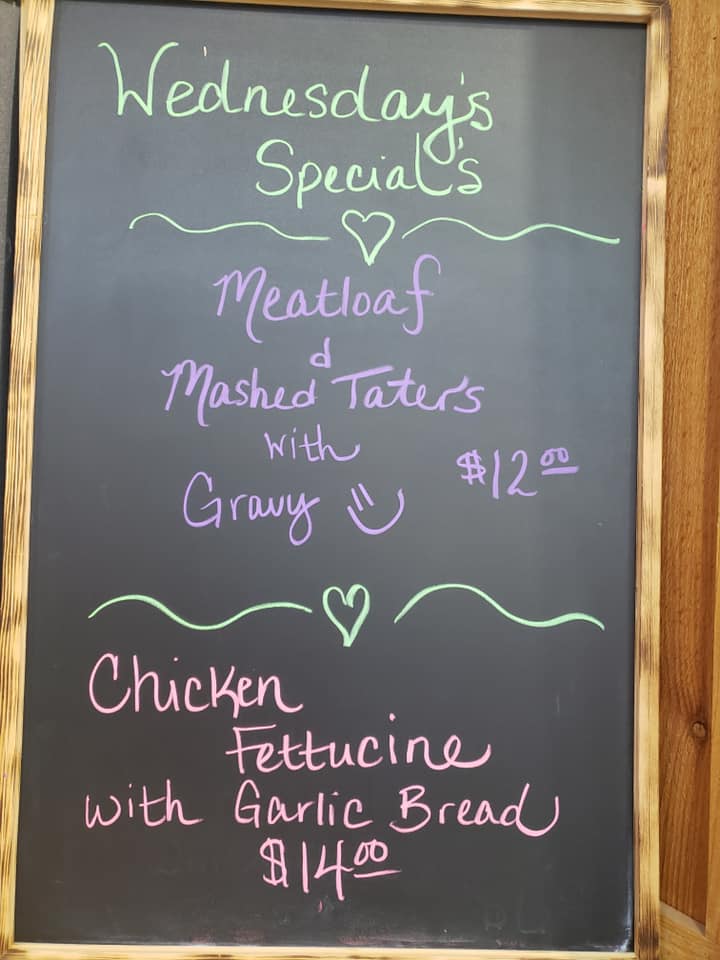 Wednesday's
Special's
Meatloaf
&
Mashed Tater's
with
Gravy
$12.00
Chicken
Fettucine
with Garlic Bread
$14.00